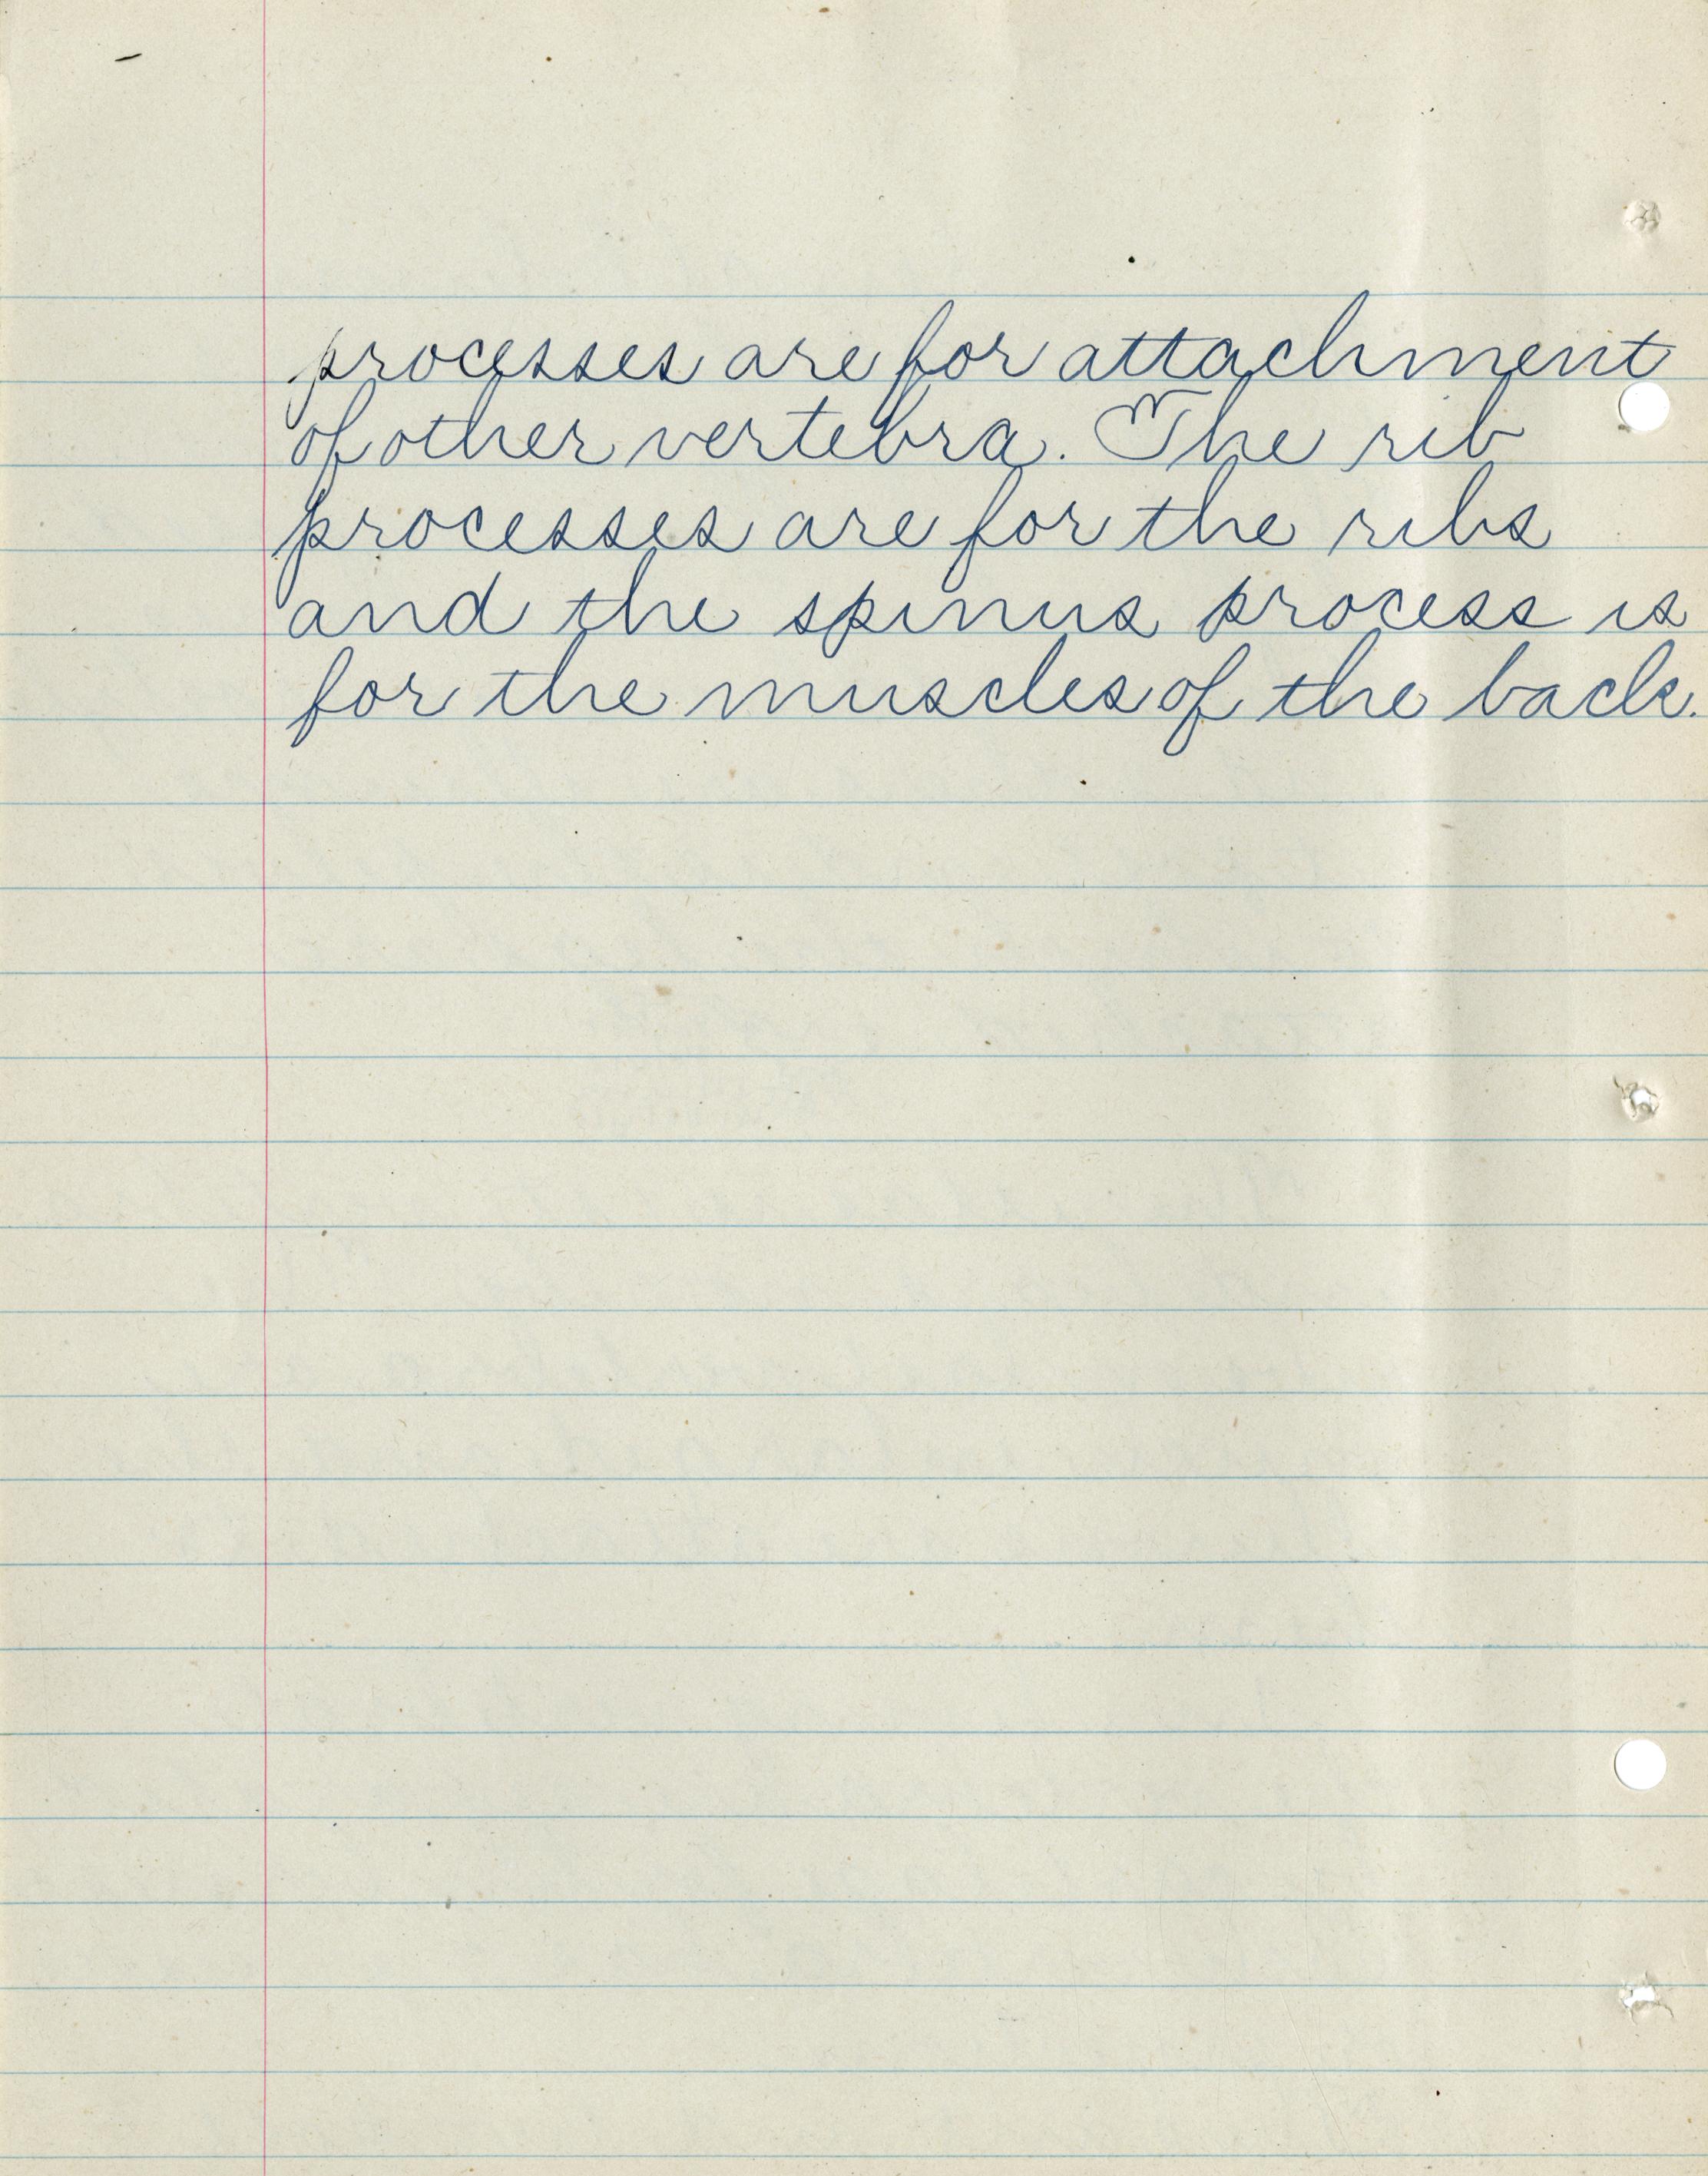 processes are for attachment
of other vertebra. The rib
processes are for the ribs
and the spinus process is
for the muscles of the back.